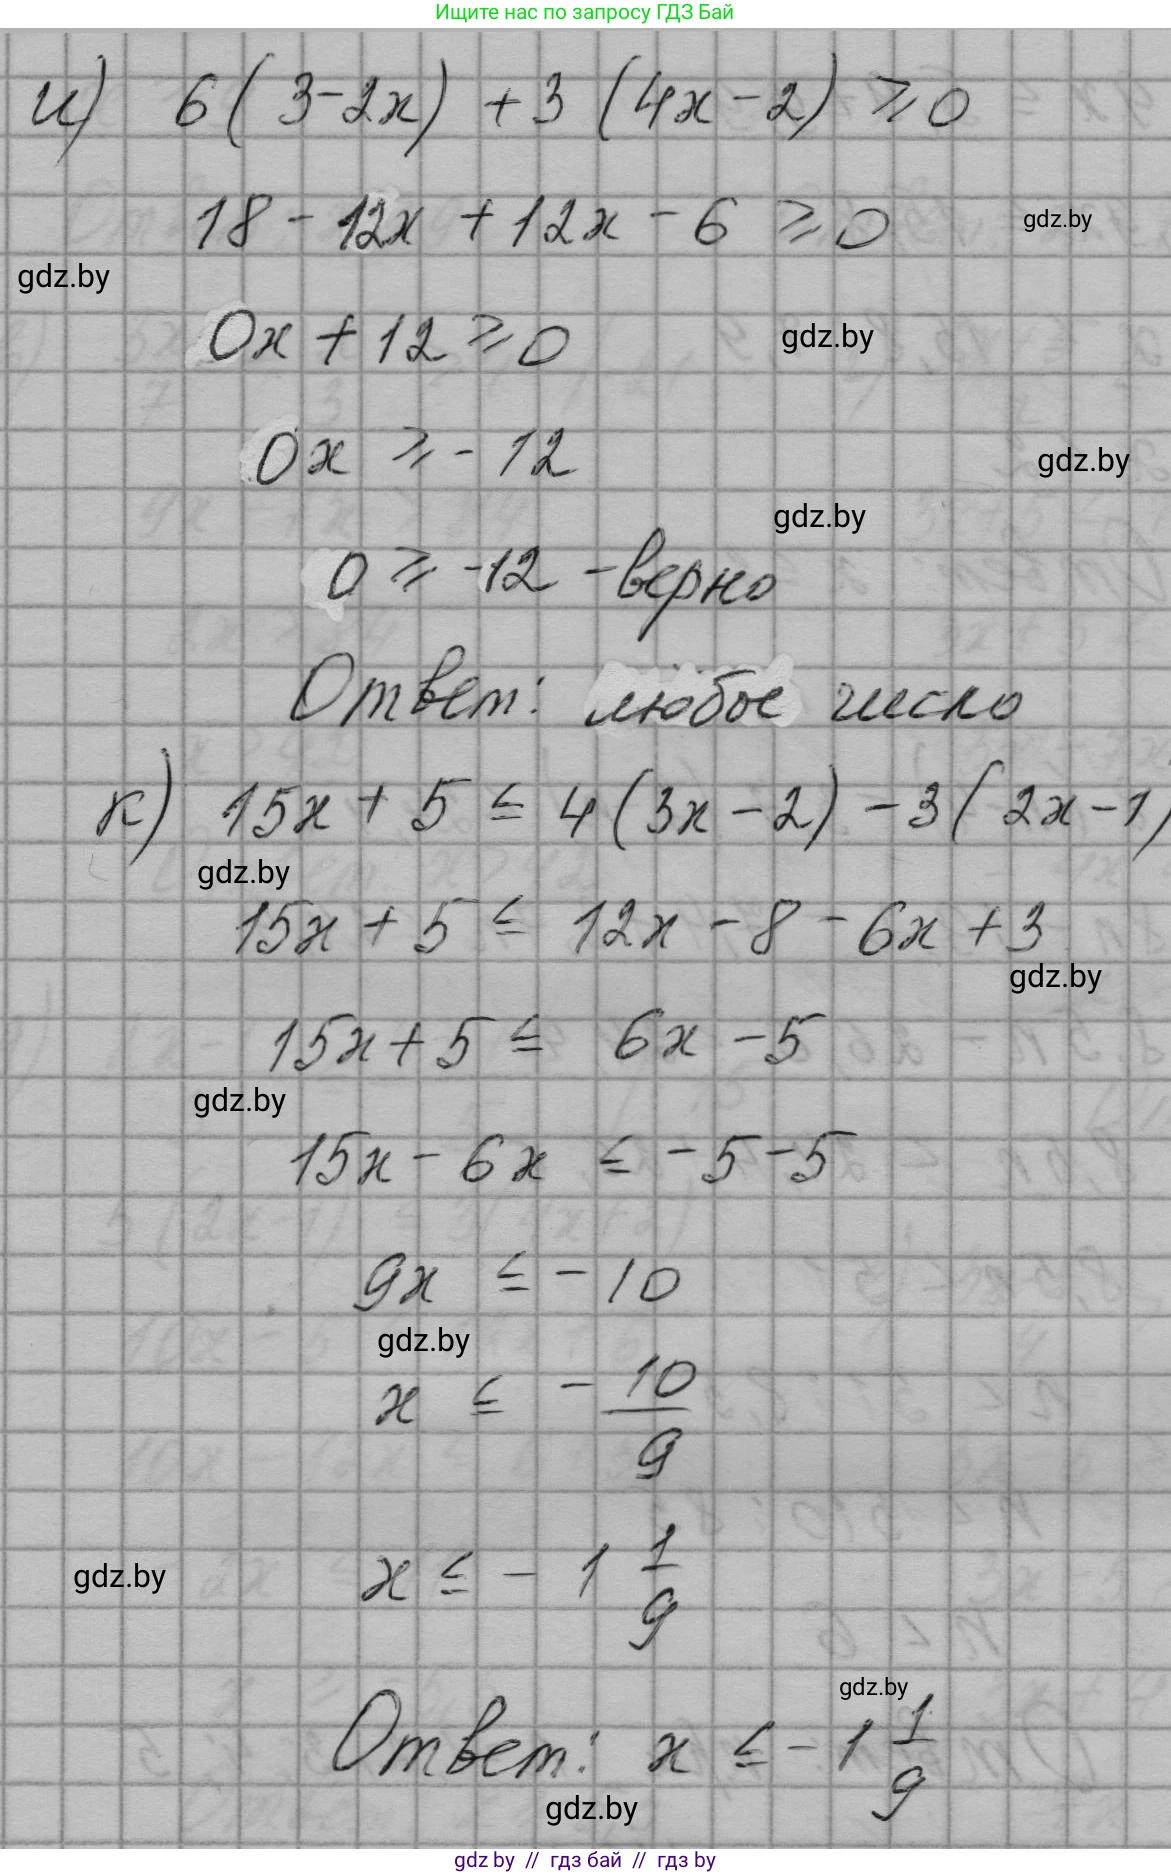 Ищите нас по запросу ГДЗ Бай
и) 6(3-2x)+3(4x-2)⩾0
18-12x+12x-6⩾0
gdz.by
gdz.by
0x+12⩾0
gdz.by
0x⩾-12
gdz.by
gdz.by
0⩾-12 -верно
Ответ: любое число
к) 15x+5≤4(3x-2)-3(2x-1)
gdz.by
15x+5≤12x-8-6x+3
gdz.by
15x+5≤6x-5
gdz.by
15x-6x≤-5-5
9x≤-10
gdz.by
x≤-10/9
x≤-1 1/9
gdz.by
gdz.by
Ответ: x≤-1 1/9
gdz.by
gdz by // гдз бай // гдз by